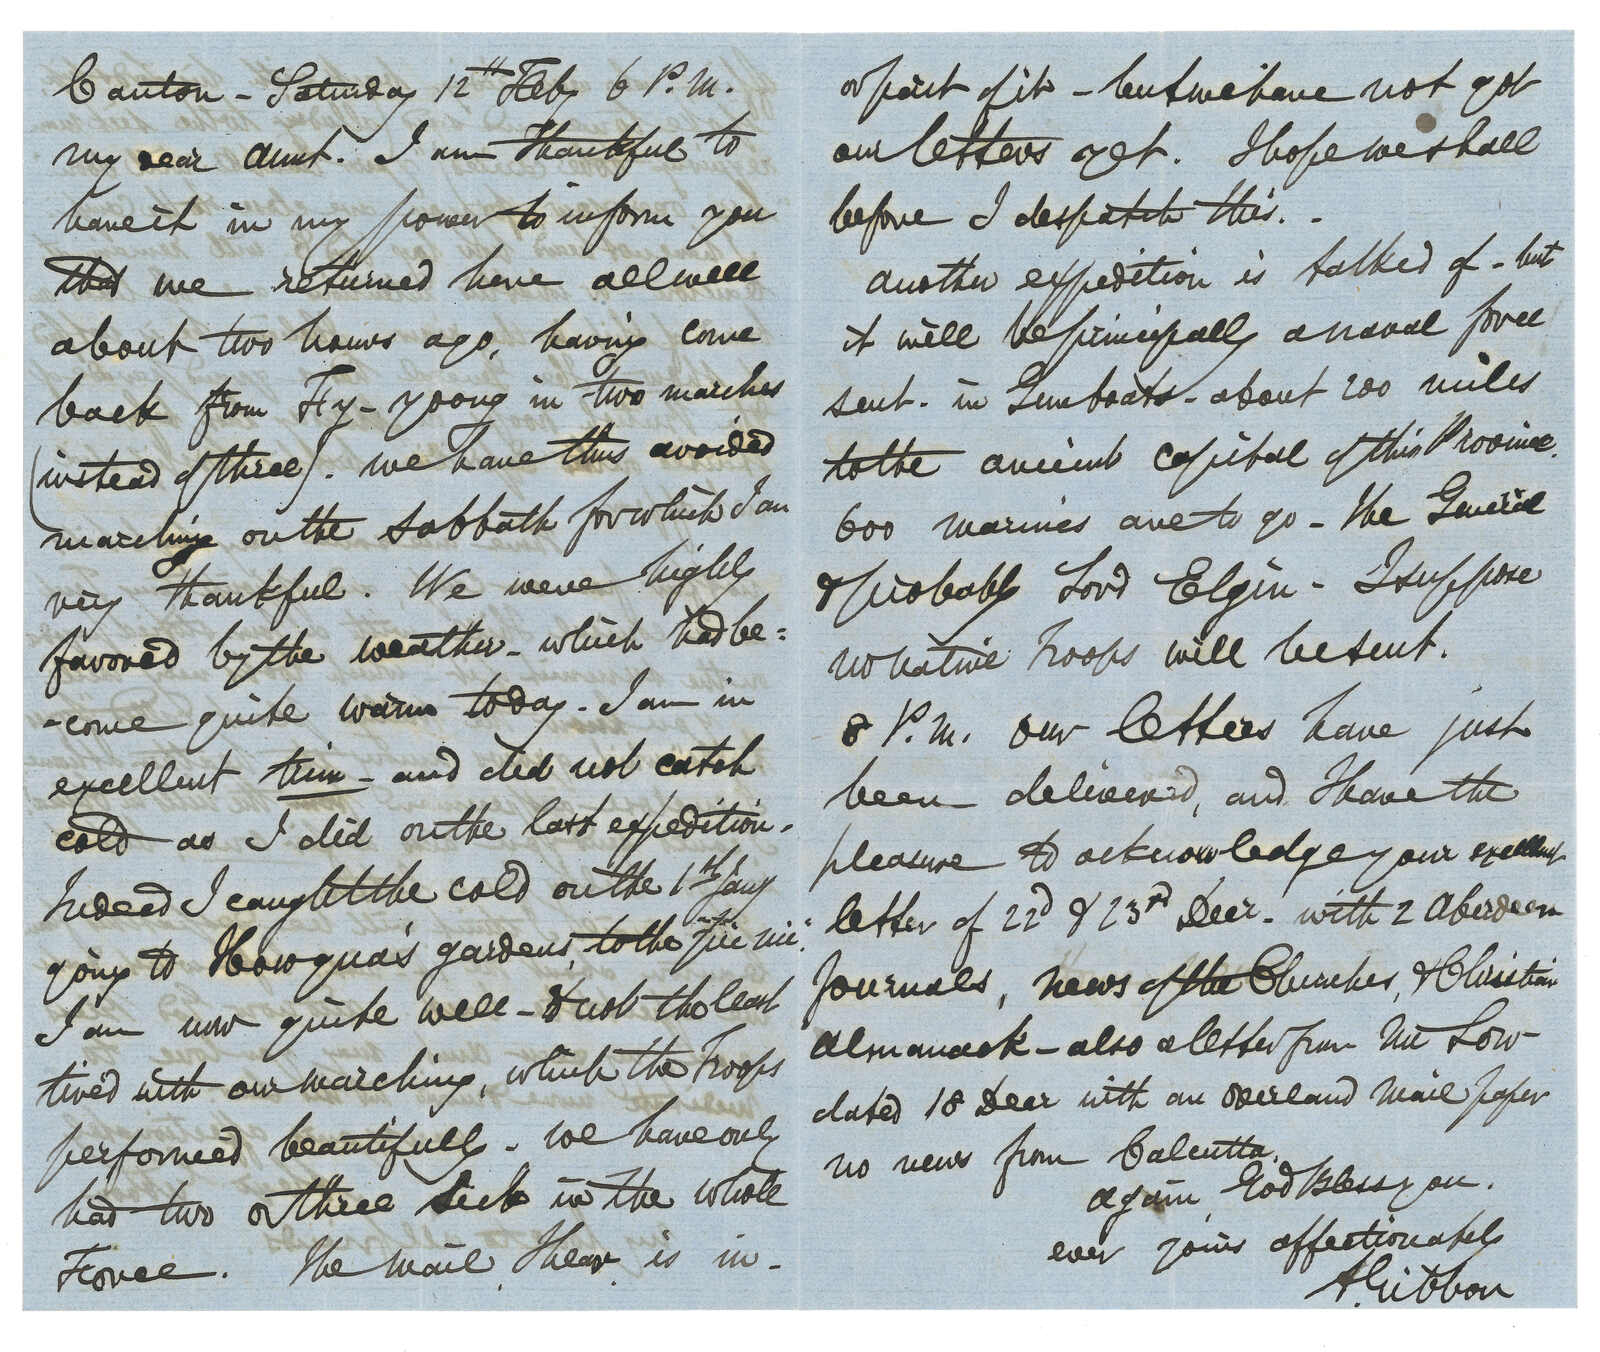 Canton - Saturday 12th Feby 6 P.M.
My dear Aunt. I am thankful to
have it in my power to inform you
that we returned here all well
about two hours ago, having come
back from Fy-yoong in two marches
(instead of three). We have thus avoided
marching on the Sabbath for which I am
very thankful. We were highly
favored by the weather - which had be=
-come quite warm today - I am in
excellent trim - and did not catch
cold as I did on the last expedition.
Indeed I caught the cold on the 1th Jany
going to Howqua's gardens, to the "Pic nic".
I am now quite well - & not the least
tired with our marching, which the Troops
performed beautifully - we have only
had two or three sick in the whole
Force. The Mail, I hear, is in -
or part of it - but we have not got
our letters yet. I hope we shall
before I despatch this. -
Another expedition is talked of - but
it will be principally a naval force
sent - in Gunboats - about 200 miles
to the ancient capital of this Province.
600 Marines are to go - the General
& probably Lord Elgin - I suppose
no native Troops will be sent.
8 P.M. Our letters have just
been delivered, and I have the
pleasure to acknowledge your excellent
letter of 22d & 23rd Decr - with 2 Aberdeen
Journals, News of the Churches, & Christian
Almanack - also a letter from Mr Low -
dated 18 Decr with an Overland Mail paper
no news from Calcutta.
again God Bless you.
ever yours affectionately
A. Gibbon